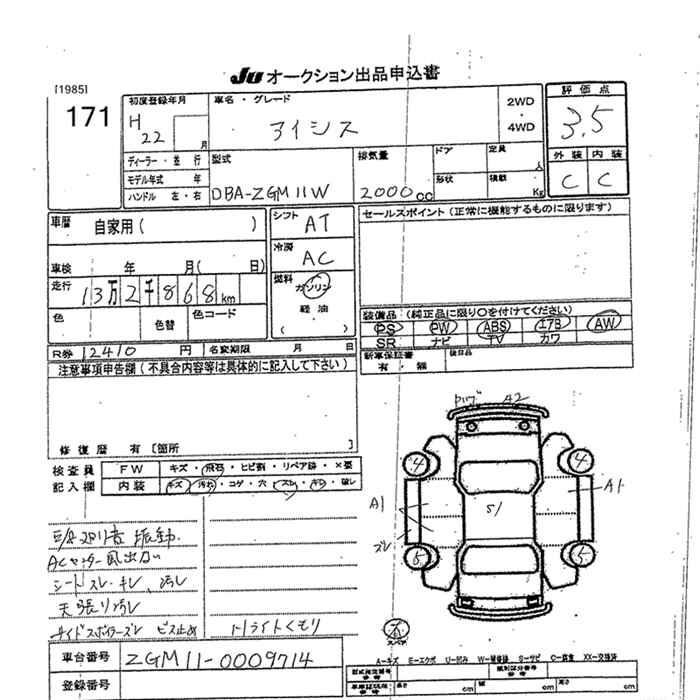 JU オークション出品申込書
[1985]
171
初度登録年月
H
22
月
車名・グレード
アイシス
2WD
・
4WD
評価点
3.5
外装 内装
C C
ディーラー・並行
モデル年式 年
ハンドル 左・右
型式
DBA-ZGM11W
排気量
2000cc
ドア
定員
人
形状
積載
Kg
車歴
自家用( )
シフト
AT
セールスポイント(正常に機能するものに限ります)
冷房
AC
車検 年 月( 日)
走行
13万2千868km
燃料
ガソリン
・
軽油
色
色替
色コード
装備品 (純正品に限り○を付けてください)
PS PW ABS エアB AW
SR ナビ TV カワ
R券 12410 円
名変期限 月 日
新車保証書
有・無
後日品
注意事項申告欄(不具合内容等は具体的に記入して下さい)
修復歴 有[箇所 ]
検査員
記入欄
FW
キズ・飛石・ヒビ割・リペア跡・×要
内装
キズ・汚れ・コゲ・穴・スレ・キレ・破レ
振動
ACセンター風出ない
シートスレ・キレ、汚レ
天張り汚レ
サイドスポイラーズレ ビス止め
トライトくもり
42
4
4
A1
A1
S1
ズレ
5
5
スペア
車台番号
ZGM11-0009714
登録番号
A-キズ E-エクボ U-凹み W-補修跡 S-サビ C-腐食 XX-交換済
型式指定番号
参考
類別区分番号
参考
長さ cm
幅 cm
高さ cm